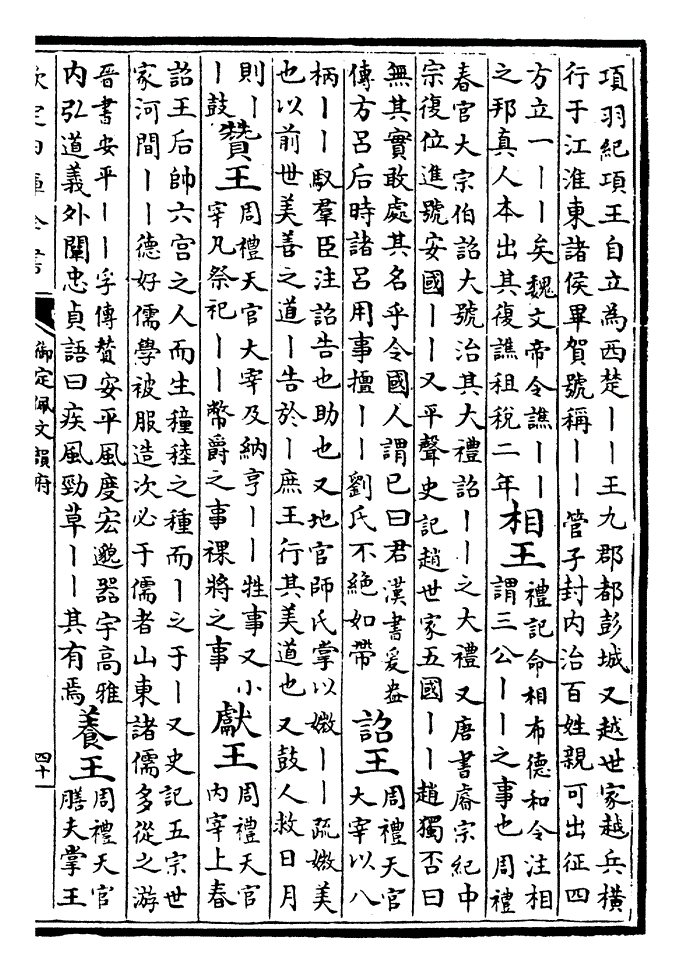 項羽紀項王自立為西楚丨丨王九郡都彭城又越世家越兵橫
行于江淮東諸侯畢賀號稱丨丨管子封内治百姓親可出征四
方立一丨丨矣魏文帝令譙丨丨
之邦真人本出其復譙租税二年
相王
禮記命相布德和令注相
謂三公丨丨之事也周禮
春官大宗伯詔大號治其大禮詔丨丨之大禮又唐書睿宗紀中
宗復位進號安國丨丨又平聲史記趙世家五國丨丨趙獨否曰
無其實敢處其名乎令國人謂已曰君漢書爰盎
傳方吕后時諸吕用事擅丨丨劉氏不絕如帶
詔王
周禮天官
大宰以八
柄丨丨馭羣臣注詔告也助也又地官師氏掌以媺丨丨疏媺美
也以前世美善之道丨告於丨庶王行其美道也又鼓人救日月
則丨
丨鼓
贊王
周禮天官大宰及納亨丨丨牲事又小
宰凡祭祀丨丨幣爵之事祼將之事
獻王
周禮天官
内宰上春
詔王后帥六宫之人而生穜稑之種而丨之于丨又史記五宗世
家河間丨丨德好儒學被服造次必于儒者山東諸儒多從之游
晉書安平丨丨孚傳贊安平風度宏邈器宇高雅
内弘道義外闡忠貞語曰疾風勁草丨丨其有焉
養王
周禮天官
膳夫掌王
欽定四庫全書
御定佩文韻府
四十